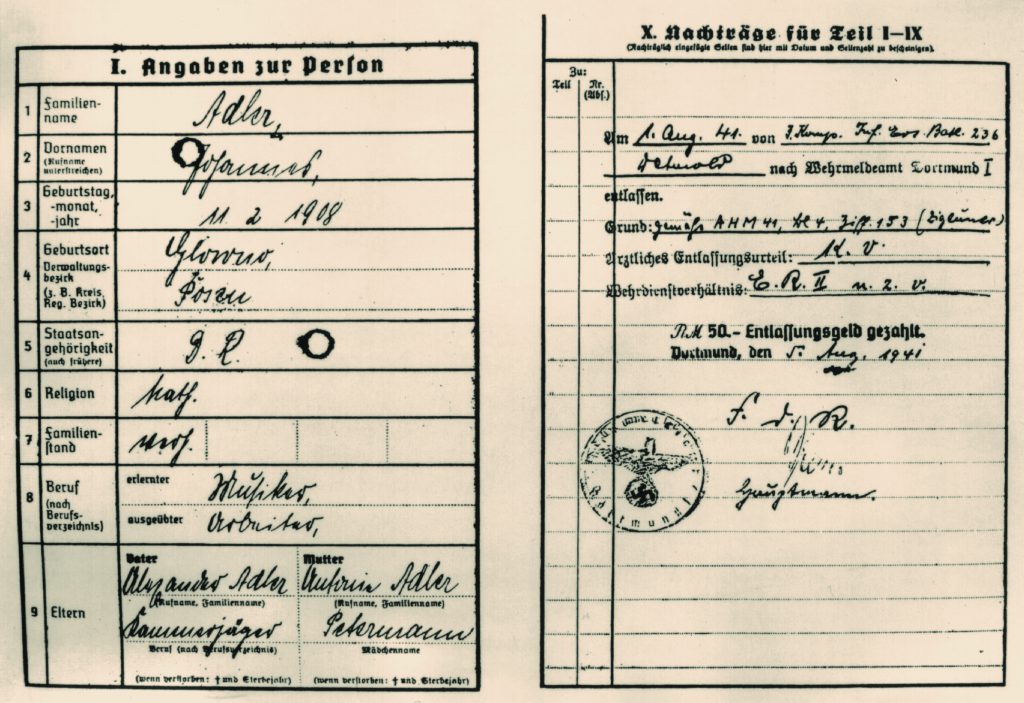 I. Angaben zur Person
1 Familien-
name
Adler,
2 Vornamen
(Rufname
unterstreichen)
Johannes,
3 Geburtstag,
-monat,
-jahr
11 2 1908
4 Geburtsort
Verwaltungs-
bezirk
(z. B. Kreis,
Reg. Bezirk)
Glowno,
Posen
5 Staatsan-
gehörigkeit
(auch frühere)
D. R.
6 Religion
kath.
7 Familien-
stand
verh.
8 Beruf
(nach
Berufs-
verzeichnis)
erlernter Musiker,
ausgeübter Arbeiter,
9 Eltern
Vater
Alexander Adler
(Rufname, Familienname)
Kammerjäger
Beruf (nach Berufsverzeichnis)
(wenn verstorben: † und Sterbejahr)
Mutter
Adler
(Rufname, Familienname)
Petermann
Mädchenname
(wenn verstorben: † und Sterbejahr)
X. Nachträge für Teil I–IX
(Nachträglich eingefügte Seiten sind hier mit Datum und Seitenzahl zu bescheinigen).
Zu:
Teil Nr.
(Abs.)
Am 1. Aug. 41. von 3. Komp. Inf. Ers. Batl. 236
Detmold nach Wehrmeldeamt Dortmund I
entlassen.
Grund: gemäß AHM 41, Bl 4, Ziff. 153 (Zigeuner)
Ärztliches Entlassungsurteil: K. v.
Wehrdienstverhältnis: E. R. II n. z. v.
RM 50.- Entlassungsgeld gezahlt.
Dortmund, den 5. Aug. 1941
F. d. R.
Hauptmann.